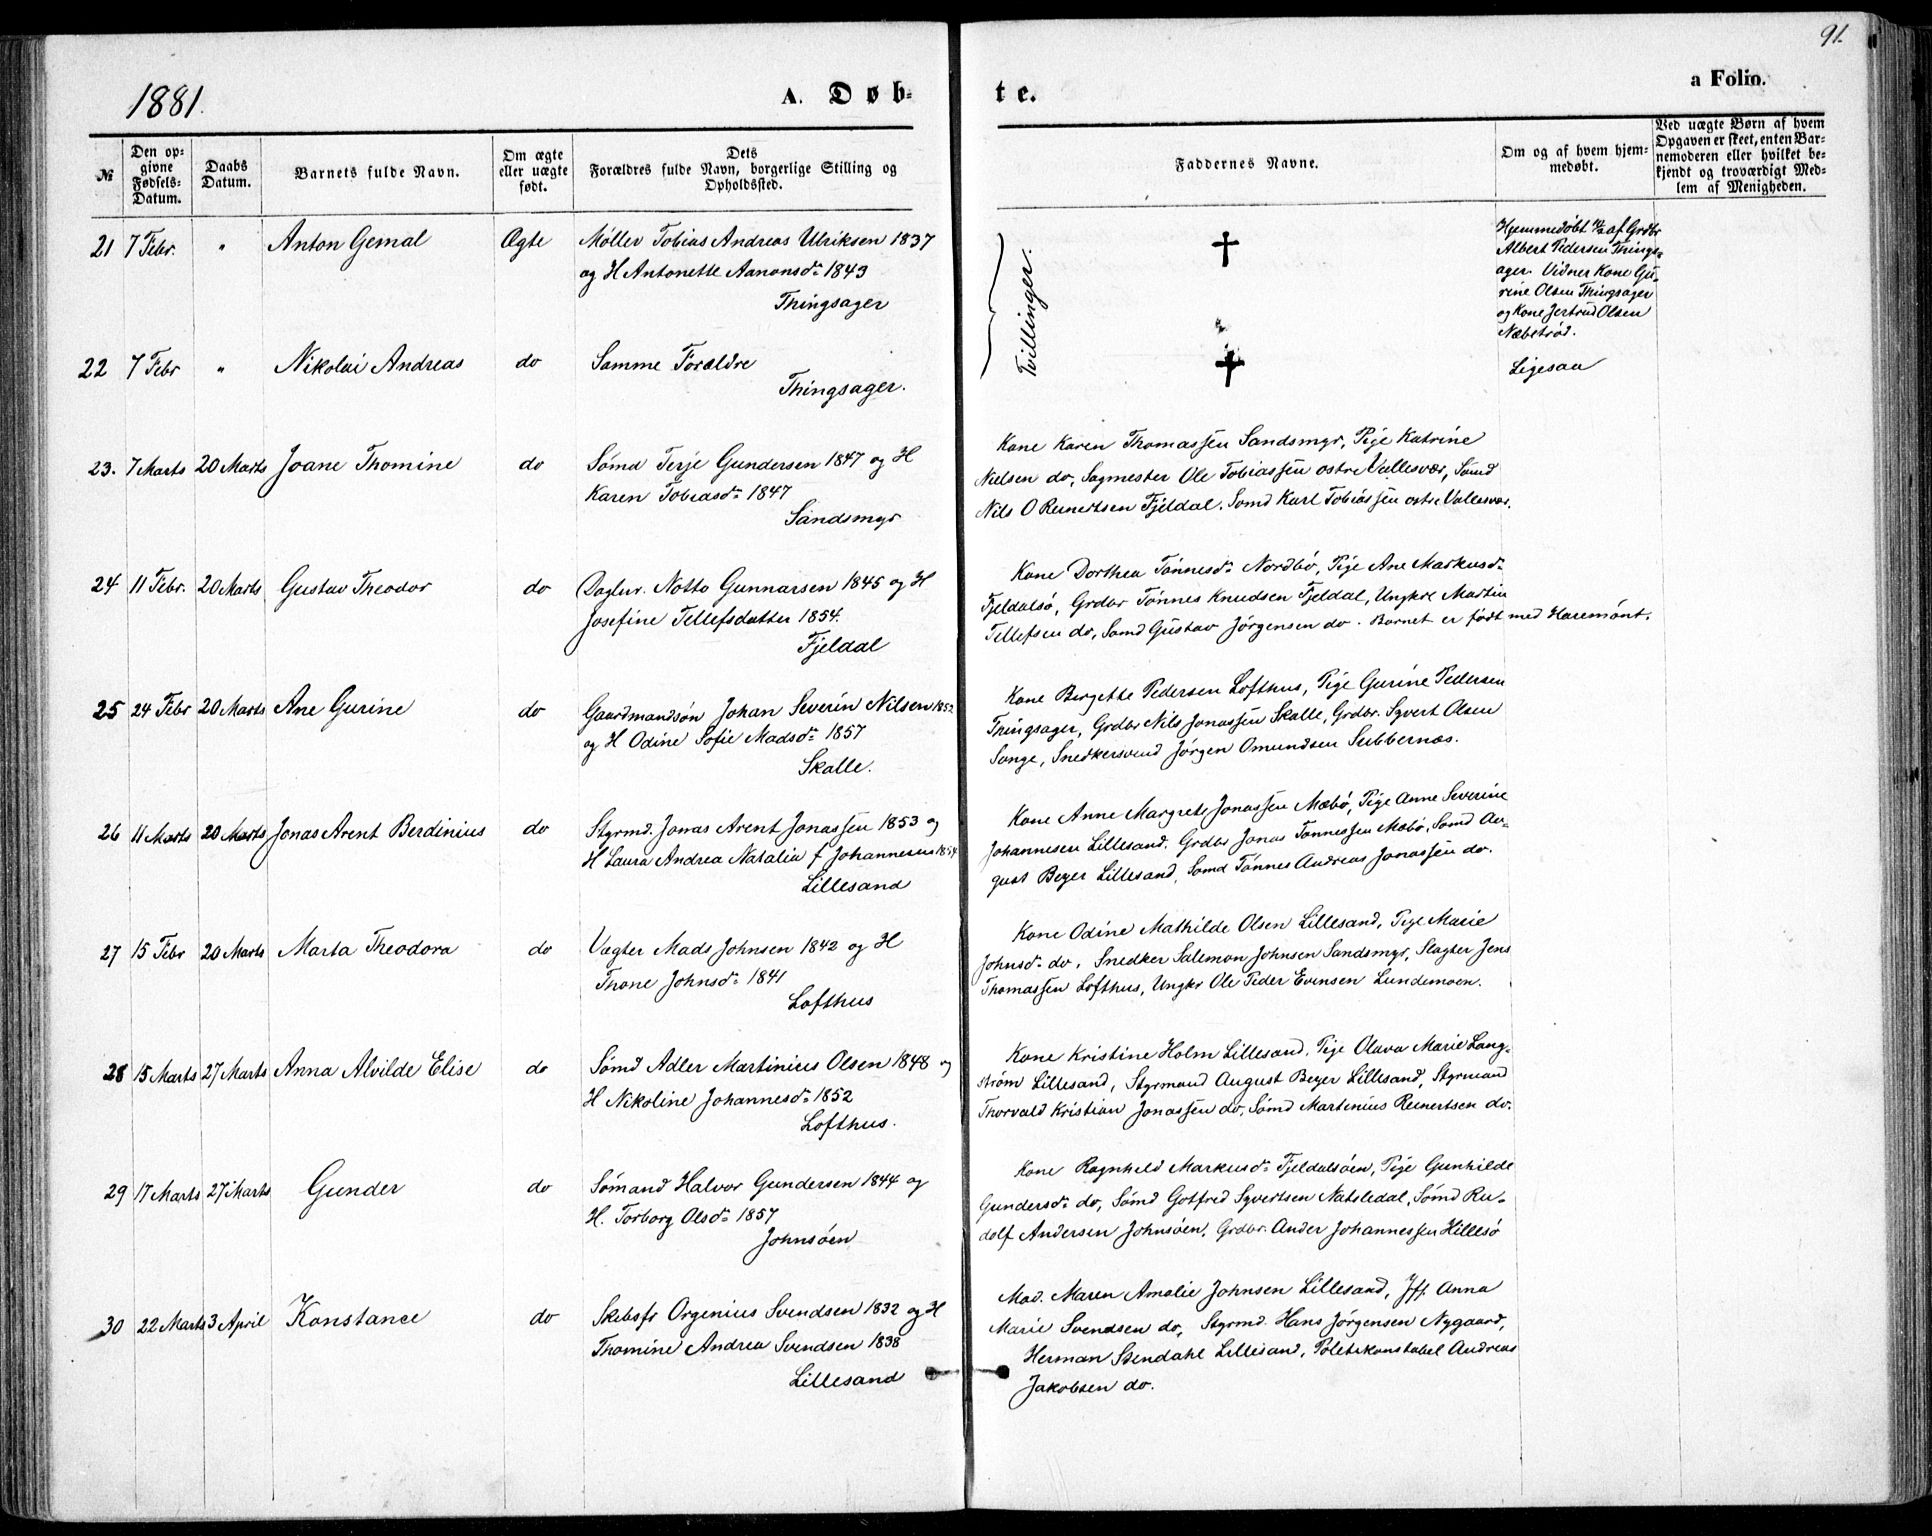 91.
1881.
A. Døb-
te.
a Folio.
№
Den op-
givne
Fødsels-
Datum.
Daabs
Datum.
Barnets fulde Navn.
Om ægte
eller uægte
født.
Dets
Forældres fulde Navn, borgerlige Stilling og
Opholdssted.
Faddernes Navne.
Om og af hvem hjem-
medøbt.
Ved uægte Børn af hvem
Opgaven er skeet, enten Bar-
nemoderen eller hvilket be-
kjendt og troværdigt Med-
lem af Menigheden.
21 7 Febr. " Anton Gemal Ægte Møller Tobias Andreas Ulriksen 1837
og H Antonette Aanonsd. 1843
Thingsager
Tvillinger.
Hjemmedøbt af Grdbr
Albert Pedersen Things-
ager. Vidner Kone Gu-
rine Olsen Thingsager
og Kone Jertrud Olsen
Næbetrød.
22 7 Febr " Nikolai Andreas do Samme Forældre
Thingsager.
Ligesaa
23. 7 Marts 20 Marts Joane Thomine do Sømd Terje Gundersen 1847 og H
Karen Tobiasd. 1847
Sandsmyr
Kone Karen Thomassen Sandsmyr, Pige Katrine
Nielsen do, Sagmester Ole Tobiassen ostre Vallesvær, Sømd
Nils O Reinertsen Fjeldal. Sømd Karl Tobiassen ostre Vallesvær.
24 11 Febr. 20 Marts Gustav Theodor do Daglur. Notto Gunnarsen 1845 og H
Josefine Tellefsdatter 1854.
Fjeldal
Kone Dorthea Tønnesd. Nordbø, Pige Ane Markusd.
Fjeldalsø, Grdbr Tønnes Knudsen Fjeldal, Ungkrl Martin
Tellefsen do, Sømd Gustav Jørgensen do. Barnet er født med Haremønt.
25 24 Febr 20 Marts Ane Gurine do Gaardmandsøn Johan Severin Nilsen 1852
og H Odine Sofie Madsd. 1857
Skalle.
Kone Birgette Pedersen Lofthus, Pige Gurine Pedersen
Thingsager, Grdbr Nils Jonassen Skalle, Grdbr. Syvert Olsen
Songe, Snedkersvend Jørgen Omundsen Subbernæs.
26 11 Marts 20 Marts Jonas Arent Berdinius do Styrmd. Jonas Arent Jonassen 1853 og
H Laura Andrea Natalia f Johannesen 1854
Lillesand
Kone Anne Margrete Jonassen Mæbø, Pige Anne Severine
Johannesen Lillesand. Grdbr Jonas Tønnessen Mæbø, Sømd Au-
gust Beyer Lillesand, Sømd Tønnes Andreas Jonassen do.
27 15 Febr 20 Marts Marta Theodora do Vægter Mads Johnsen 1842 og H
Thone Johnsd. 1841
Lofthus
Kone Odine Mathilde Olsen Lillesand, Pige Marie
Johnsd. do, Snedker Salemon Johnsen Sandsmyr, Slagter Jens
Thomassen Lofthus, Ungkr Ole Peder Evensen Lundemoen.
28 15 Marts 27 Marts Anna Alvilde Elise do Sømd Adler Martinius Olsen 1848 og
H Nikoline Johannesd. 1852
Lofthus.
Kone Kristine Holm Lillesand, Pige Olava Marie Lang-
strøm Lillesand, Styrmand August Beyer Lillesand, Styrmand
Thorvald Kristian Jonassen do, Sømd Martinius Reinertsen do.
29 17 Marts 27 Marts Gunder do Sømand Halvor Gundersen 1844 og
H. Torborg Olsd. 1857
Johnsøen
Kone Ragnhild Markusd. Fjeldalsøen, Pige Gunhilde
Gundersd. do, Sømd Gotfred Syvertsen Natsledal, Sømd Ru-
dolf Andersen Johnsøen, Grdbr. Ander Johannessen Hillesø
30 22 Marts 3 April Konstance do Skibsfr Orgenius Svendsen 1832 og H
Thomine Andrea Svendsen 1838
Lillesand
Mad. Maren Amalie Johnsen Lillesand, Jfr. Anna
Marie Svendsen do, Styrmd. Hans Jørgensen Nygaard,
Herman Stendahl Lillesand, Politikonstabel Andreas
Jakobsen do.